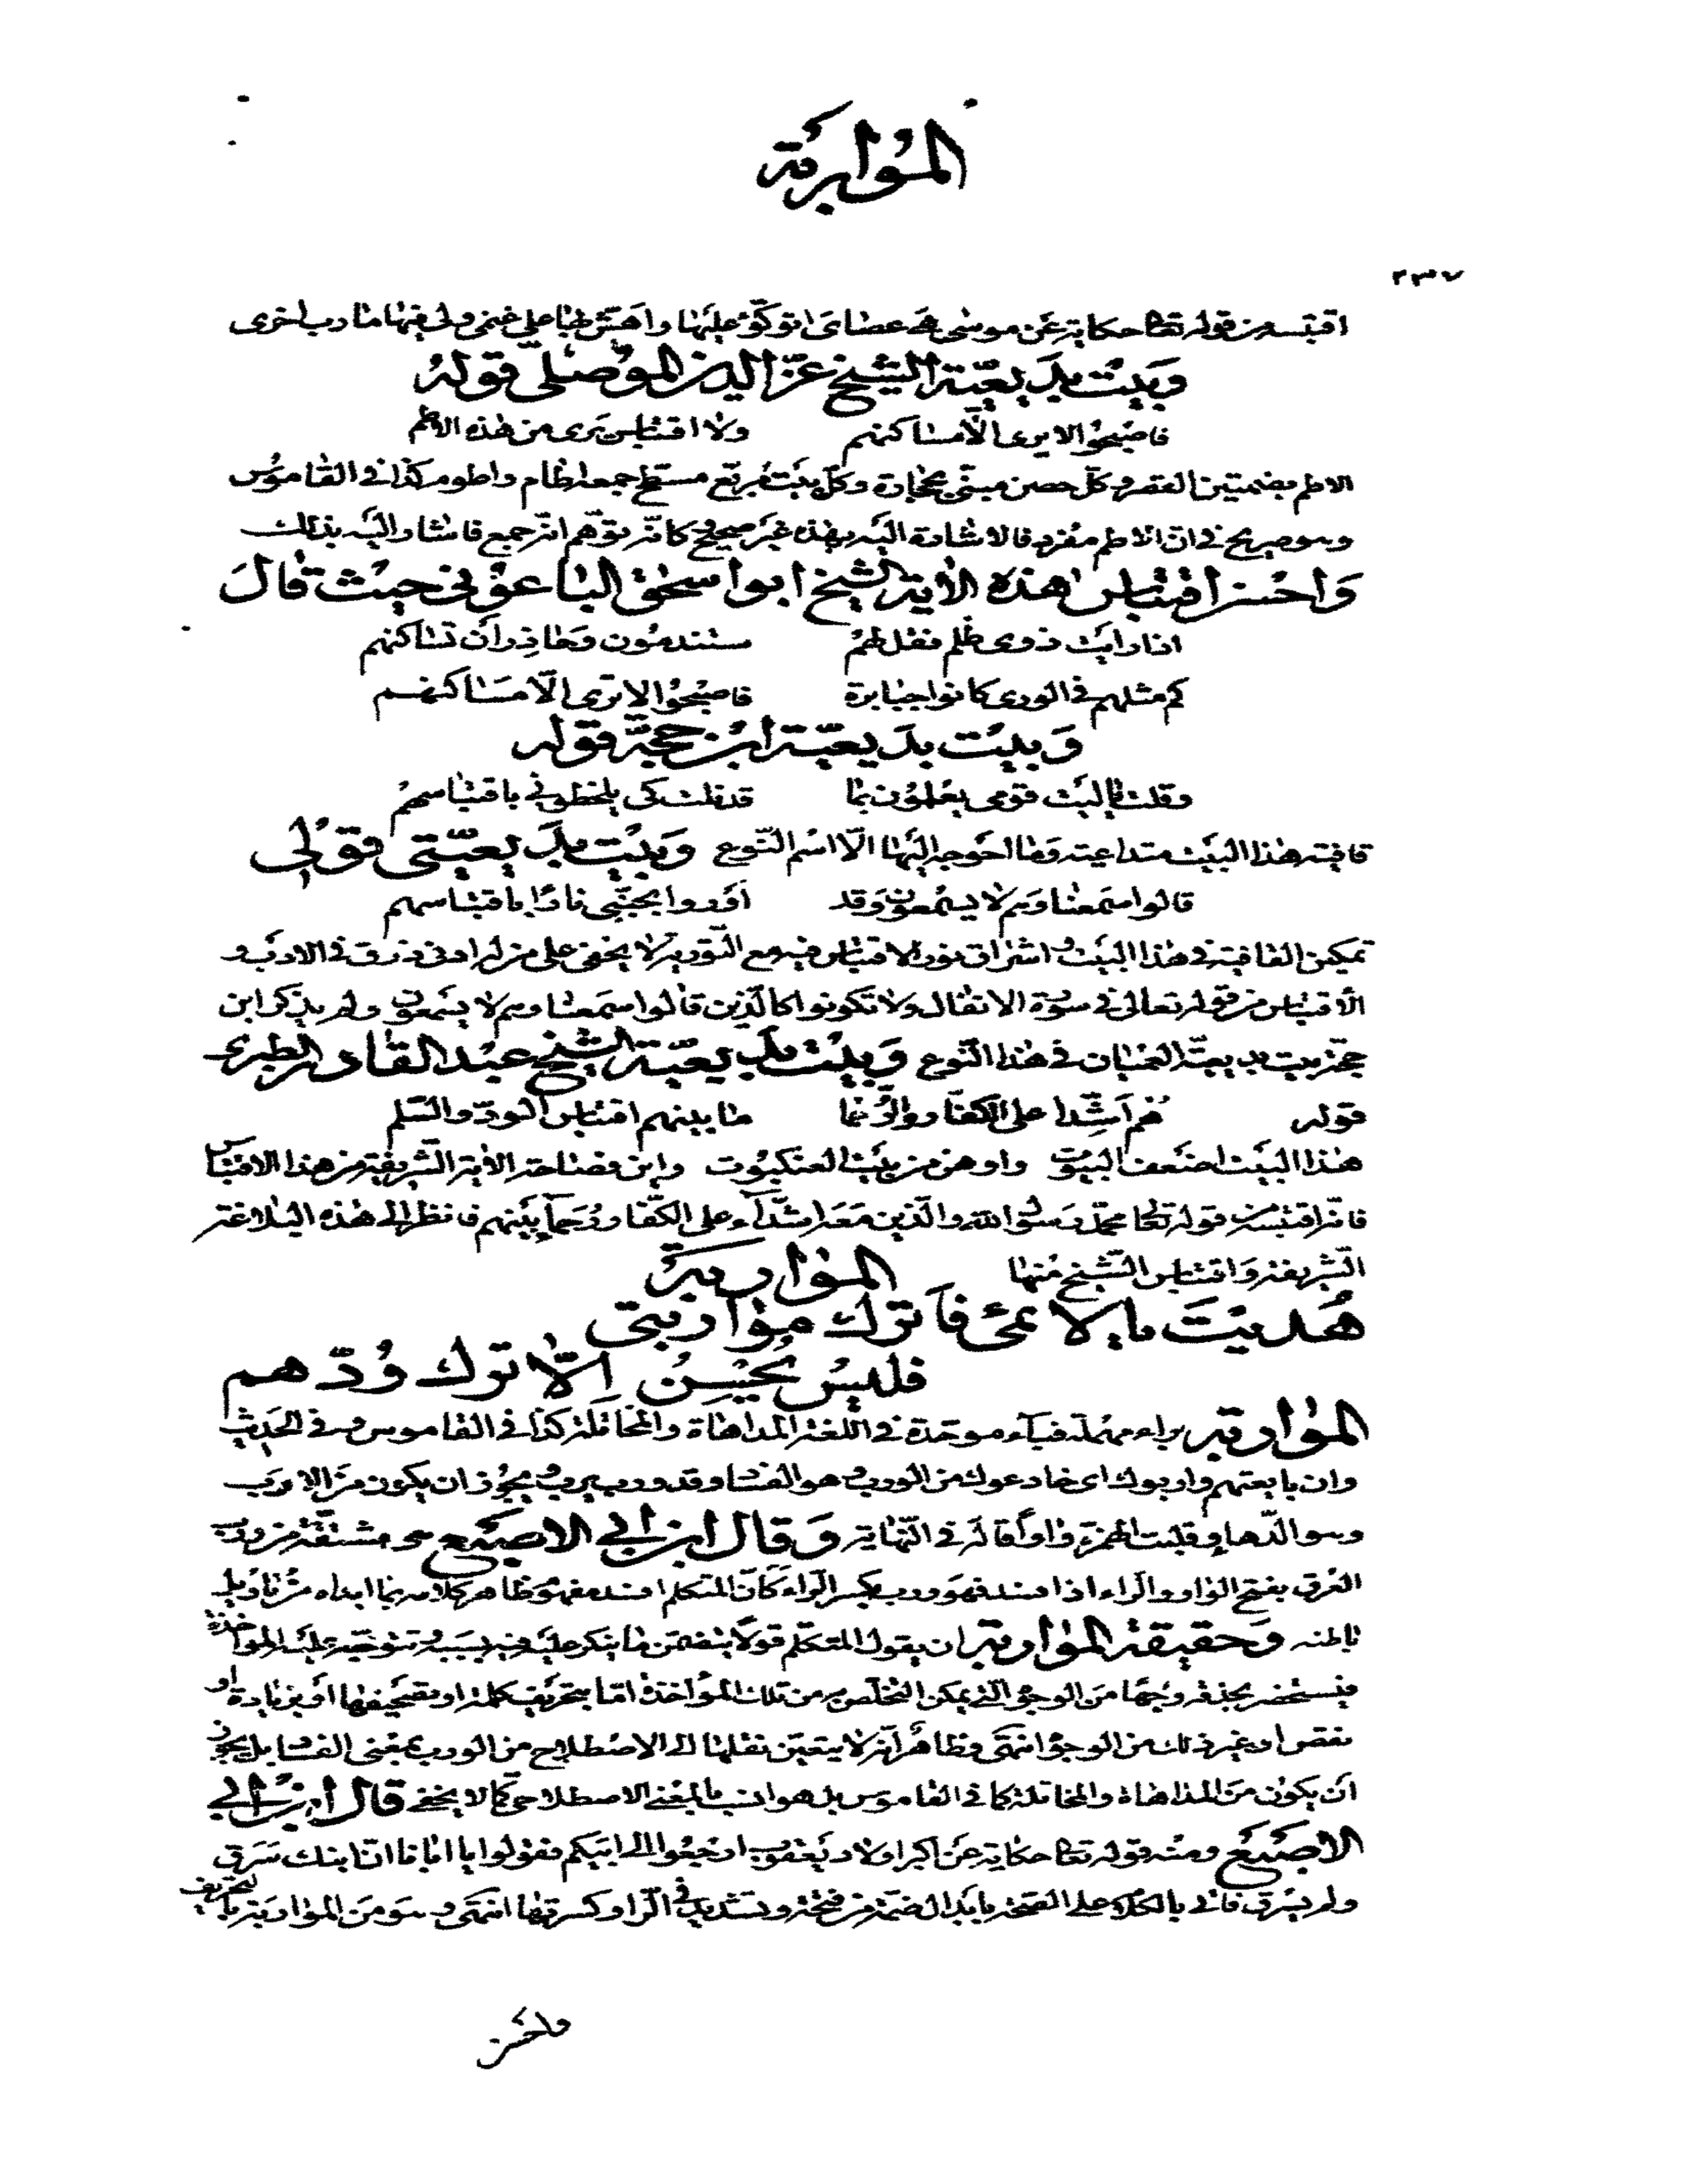 المواربة
٢٣٧
اقتبسه من قوله تعالى حكاية عن موسى هي عصاي اتوكؤ عليها واهش بها على غنمي ولي فيها مآرب اخرى
وبيت بديعية الشيخ عز الدين الموصلي قوله
فاصبحوا لا يرى الا مساكنهم ولا اقتباس يرى من هذه الاطم
الاطم بضمتين القصر وكل حصن مبني بحجارة وكل بيت مربع مسطح جمعه اطام واطوم كذا في القاموس
وهو صريح في ان الاطم مفرد فالاشارة اليه بهذه غير صحيح كانه توهم انه جمع فاشار اليه بذلك
واحسن اقتباس هذه الاية الشيخ ابو اسحق الباعوني حيث قال
اذا رايت ذوي ظلم فقل لهم ستندمون وحاذر ان تساكنهم
كم مثلهم في الورى كانوا جبابرة فاصبحوا لا ترى الا مساكنهم
وبيت بديعية ابن حجة قوله
وقلت يا ليت قومي يعلمون بما قد نلت كي يلحظوني باقتباسهم
قافية هذا البيت متداعية وما احوجه اليها الا اسم النوع وبيت بديعيتي قولي
قالوا سمعنا وهم لا يسمعون وقد اوروا بجنبي نارا باقتباسهم
تمكين القافية في هذا البيت واشراق نور الاقتباس فيه مع التورية لا يخفى على من له ادنى ذوق في الادب و
الاقتباس من قوله تعالى في سورة الانفال ولا تكونوا كالذين قالوا سمعنا وهم لا يسمعون ولم يذكر ابن
حجة بيت بديعية العميان في هذا النوع وبيت بديعية الشيخ عبد القادر الطبري
قوله هم اشدا على الكفار والرحما ما بينهم اقتباس الود والسلم
هذا البيت اضعف البيوت واوهن من بيت العنكبوت واين فصاحة الاية الشريفة من هذا الاقتباس
فانه اقتبس من قوله تعالى محمد رسول الله والذين معه اشداء على الكفار رحماء بينهم فانظر الى هذه البلاغة
الشريفة واقتباس الشيخ منها المواربة
هديت يا لائمي فاترك مواربتي
فليس يحسن الا ترك ودهم
المواربة براء مهملة فباء موحدة في اللغة المداهاة والمخاتلة كذا في القاموس وفي الحديث
وان بايعتهم واربوك اي خادعوك من الورب وهو الفساد وقد ورب يرب ويجوز ان يكون من الارب
وهو الدهاء وقلبت الهمزة واوا قاله في النهاية وقال ابن ابي الاصبع هي مشتقة من ورب
العرق بفتح الواو والراء اذا فسد فهو ورب بكسر الراء كان المتكلم افسد مفهوم ظاهر كلامه بما ابداه من تاويل
باطنه وحقيقة المواربة ان يقول المتكلم قولا يتضمن ما ينكر عليه فيه بسببه وتتوجه عليه المواخذة
فيستحضر بحذقه وجها من الوجوه التي يمكن التخلص به من تلك المؤاخذة اما بتحريف كلمة او تصحيفها او بزيادة او
نقص او غير ذلك من الوجوه انتهى وظاهر انه لا يتعين نقلها الى الاصطلاح من الورب بمعنى الفساد بل يجوز
ان يكون من المداهاة والمخاتلة كما في القاموس بل هو انسب بالمعنى الاصطلاحي كما لا يخفى قال ابن ابي
الاصبع ومنه قوله تعالى حكاية عن اكبر اولاد يعقوب ارجعوا الى ابيكم فقولوا يا ابانا ان ابنك سرق
ولم يسرق فاتى بالكلام على الصحة بابدال ضمة من فتحة وتشديد في الراء وكسرتها انتهى وهو من المواربة بالتحريف